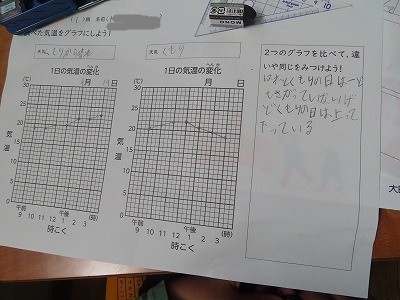 べた気温をグラフにしよう!
天気
天気 くもり
1日の気温の変化
月 日
(℃)
30
25
20
15
10
5
0
気温
午前 午後
9 10 11 12 1 2 3 (時)
時こく
1日の気温の変化
月 日
(℃)
30
25
20
15
10
5
0
気温
午前 午後
9 10 11 12 1 2 3 (時)
時こく
2つのグラフを比べて、違
いや同じをみつけよう!
くもりの日は
くもりの日は上って
下っている
MONO